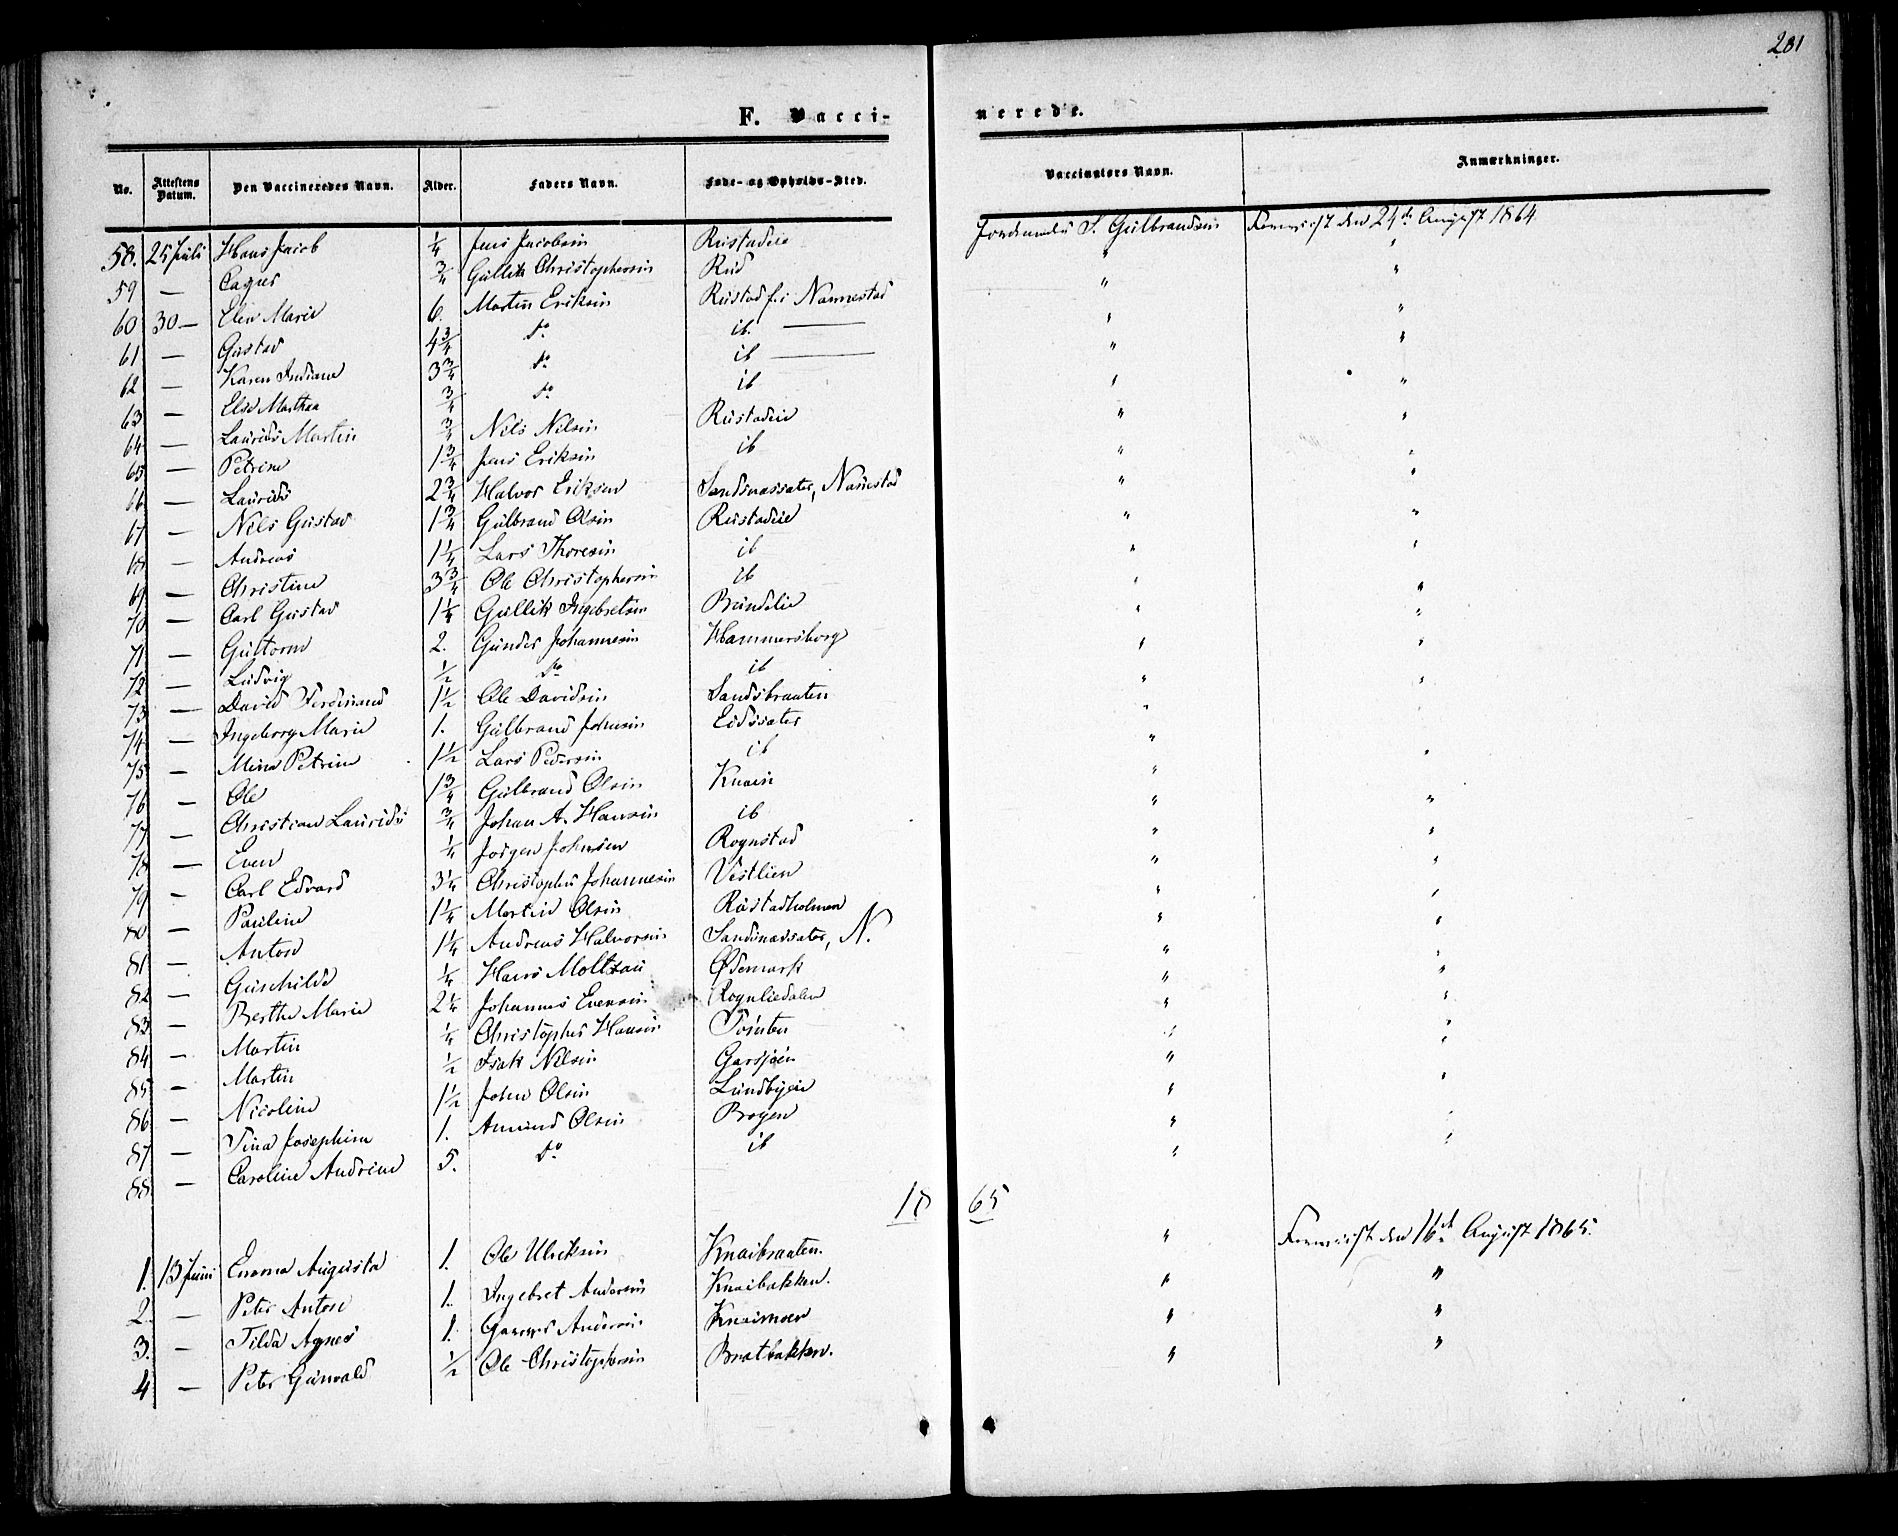 281
F. Vacci-nerede.
No. Attestens Datum. Den Vaccineredes Navn. Alder. Faders Navn. Føde- og Opholds-Sted. Vaccinatørs Navn. Anmærkninger.
58. 25 Juli Hans Jacob 1/4 Jens Jacobsen Rustadeie S. Gulbrandsen Fremvist den 24de August 1864
59 — 3/4 Gullik Christophersen Rud " "
60 30 — Elen Marie 6. Martin Eriksen Rustad f. i Nannestad " "
61 — Gustav 4 3/4 do ib. — " "
62 — Karen Indiane 3 3/4 do ib — " "
63 — Else Marthea 3/4 do ib " "
64 — Laurids Martin 3/4 Nils Nilsen Rustadeie " "
65 — Petrine 1 3/4 Jens Eriksen ib " "
66 — Laurids 2 3/4 Halvor Eriksen Sandsnæssæter, Nannestad " "
67 — Nils Gustav 1 3/4 Gulbrand Olsen Rustadeie " "
68 — Andreas 1 1/4 Lars Thoresen ib " "
69 — Christine 3 3/4 Ole Christophersen ib " "
70 — Carl Gustav 1 1/4 Gullik Ingebretsen Brindelie " "
71 — Guttorm 2. Gunder Johannesen Hammersborg " "
72 — Ludvig 1/2 do ib " "
73 — David Ferdinand 1 1/2 Ole Davidsen Sandsbraaten " "
74 — Ingeborg Marie 1. Gulbrand Johnsen Eidssæter " "
75 — Mina Petrine 1 1/2 Lars Pedersen ib " "
76 — Ole 1 3/4 Gulbrand Olsen Knaien " "
77 — Christian Laurids 3/4 Johan A. Hansen ib " "
78 — Even 1/4 Jørgen Johnsen Rognstad " "
79 — Carl Edvard 3 1/4 Christopher Johannesen Vestlien " "
80 — Pauline 1 1/4 Martin Olsen Rustadholmen " "
81 — Anton 1 1/4 Andreas Halvorsen Sandsnæssæter, N. " "
82 — Gunhilde 1/4 Hans Moltzau Ødemark " "
83 — Berthe Marie 2 1/4 Johannes Evensen Rognliedalen " "
84 — Martin 1/4 Christopher Hansen Tømten " "
85 — Martin 1/2 Isak Nilsen Garsjøen " "
86 — Nicoline 1 1/2 John Olsen Lundbyeie " "
87 — Tina Josephine 1. Amund Olsen Brogen " "
88. — Caroline Andrine 5. do ib "
18 65
1. 13 Juni Emma Augusta 1. Ole Ulriksen Knaibraaten. " Fremvist den 16de August 1865.
2. — Peter Anton 1. Ingebret Andersen Knaibakken. " "
3. — Tilda Agnes 1. Andersen Knaimoen " "
4 — Peter Gunvald 1/2 Ole Christophersen Bratbakken. " "